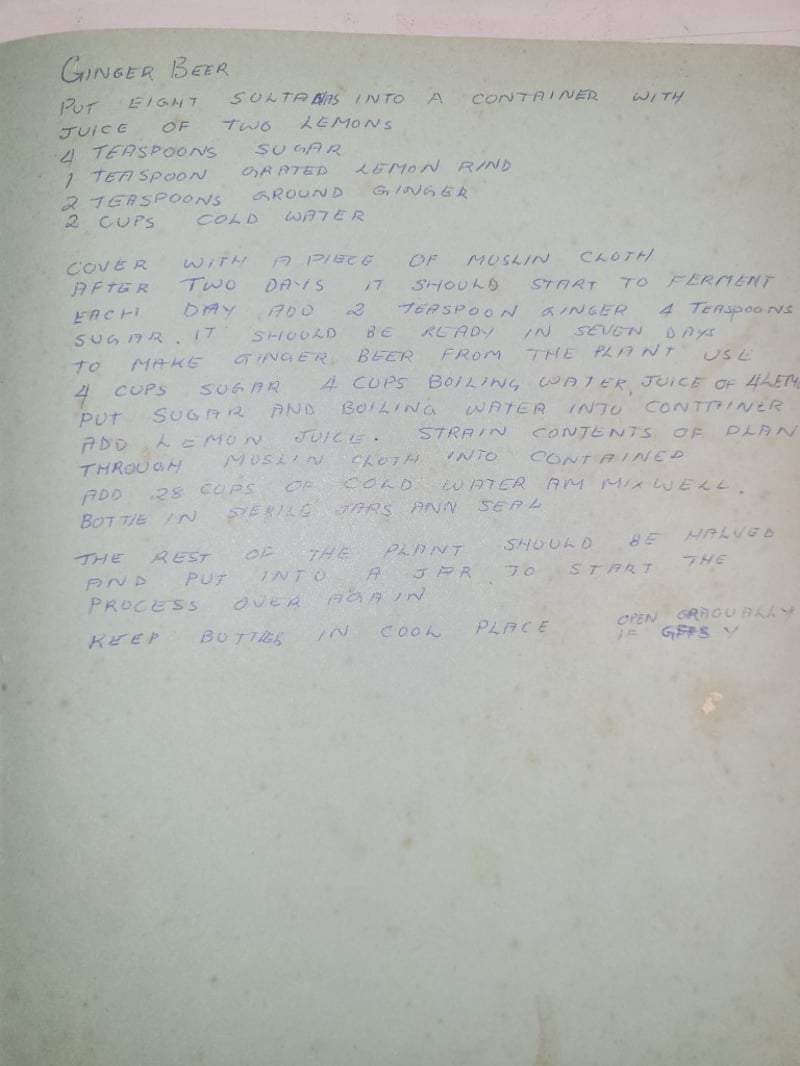 GINGER BEER
PUT EIGHT SULTANAS INTO A CONTAINER WITH
JUICE OF TWO LEMONS
4 TEASPOONS SUGAR
1 TEASPOON GRATED LEMON RIND
2 TEASPOONS GROUND GINGER
2 CUPS COLD WATER
COVER WITH A PIECE OF MUSLIN CLOTH
AFTER TWO DAYS IT SHOULD START TO FERMENT
EACH DAY ADD 2 TEASPOON GINGER 4 TEASPOONS
SUGAR. IT SHOULD BE READY IN SEVEN DAYS
TO MAKE GINGER BEER FROM THE PLANT USE
4 CUPS SUGAR 4 CUPS BOILING WATER, JUICE OF 4 LEM
PUT SUGAR AND BOILING WATER INTO CONTAINER
ADD LEMON JUICE. STRAIN CONTENTS OF PLAN
THROUGH MUSLIN CLOTH INTO CONTAINED
ADD 28 CUPS OF COLD WATER MIX WELL.
BOTTLE IN STERILE JARS ANN SEAL
THE REST OF THE PLANT SHOULD BE HALVED
AND PUT INTO A JAR TO START THE
PROCESS OVER AGAIN
KEEP BOTTLES IN COOL PLACE OPEN GRAGUALLY
IF GASSY